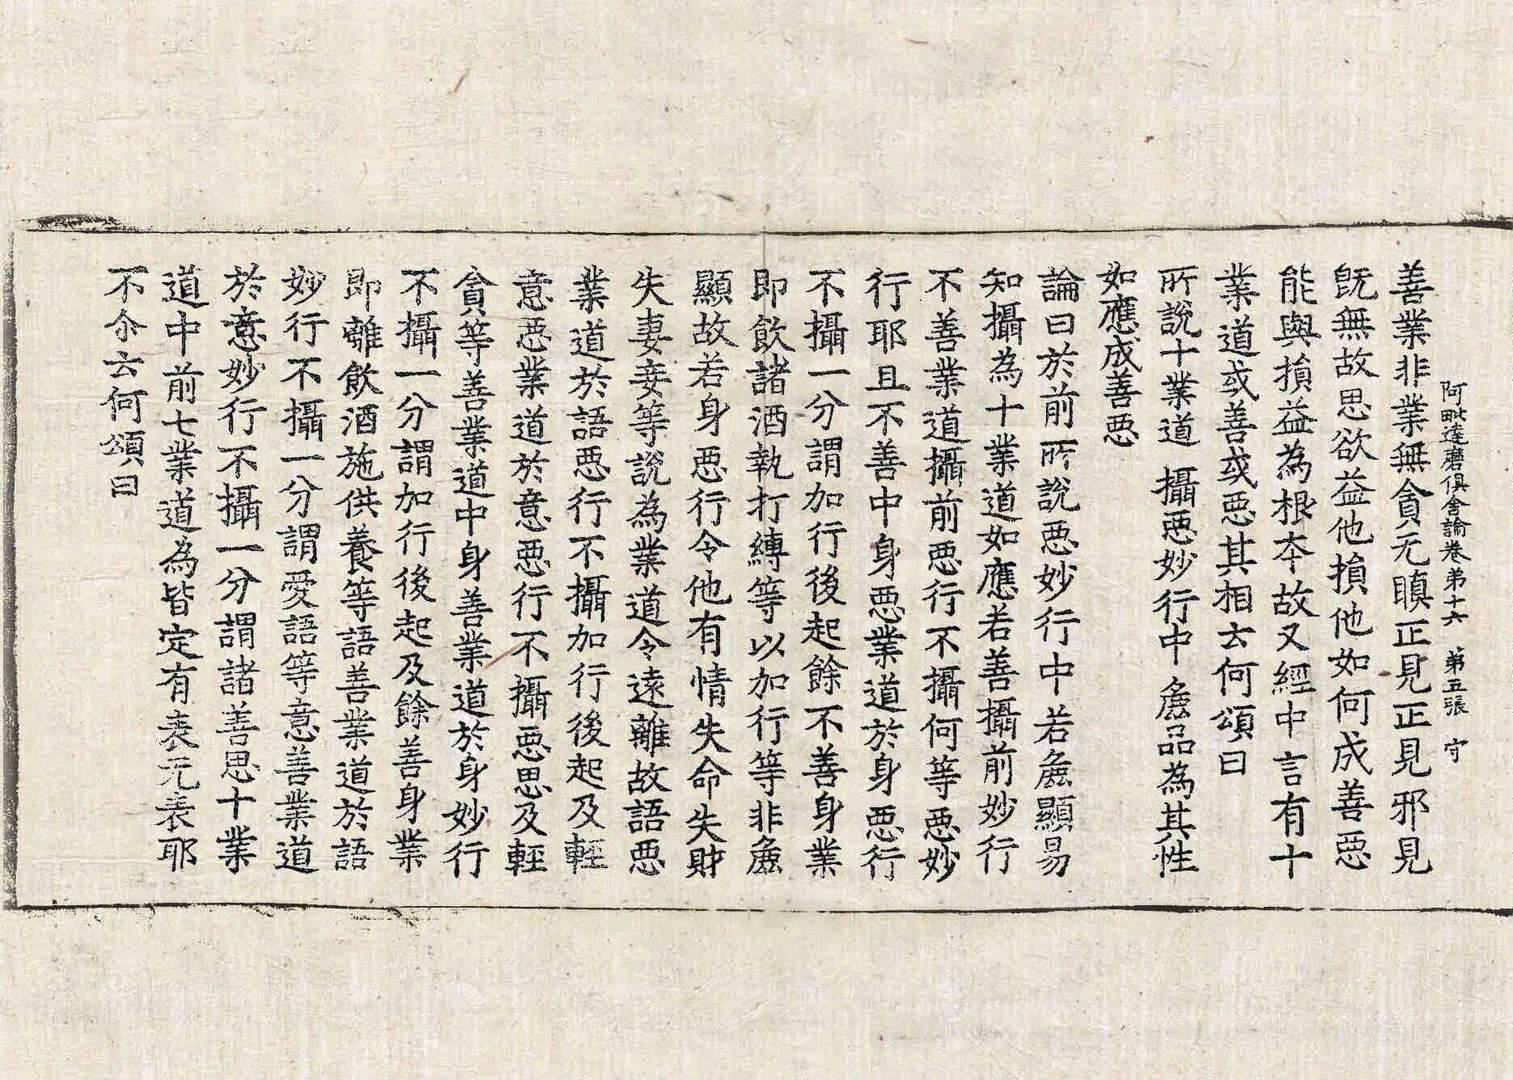 阿毗達磨俱舍論卷第十六　第五張　守
善業非業無貪无瞋正見正見邪見
旣無故思欲益他損他如何成善惡
能與損益為根夲故又經中言有十
業道或善或惡其相云何頌曰
所說十業道　攝惡妙行中　麁品為其性
如應成善惡
論曰於前所說惡妙行中若麁顯易
知攝為十業道如應若善攝前妙行
不善業道攝前惡行不攝何等惡妙
行耶且不善中身惡業道於身惡行
不攝一分謂加行後起餘不善身業
即飲諸酒執打縛等以加行等非麁
顯故若身惡行令他有情失命失財
失妻妾等說為業道令遠離故語惡
業道於語惡行不攝加行後起及輕
意惡業道於意惡行不攝惡思及輕
貪等善業道中身善業道於身妙行
不攝一分謂加行後起及餘善身業
即離飲酒施供養等語善業道於語
妙行不攝一分謂愛語等意善業道
於意妙行不攝一分謂諸善思十業
道中前七業道為皆定有表无表耶
不尒云何頌曰